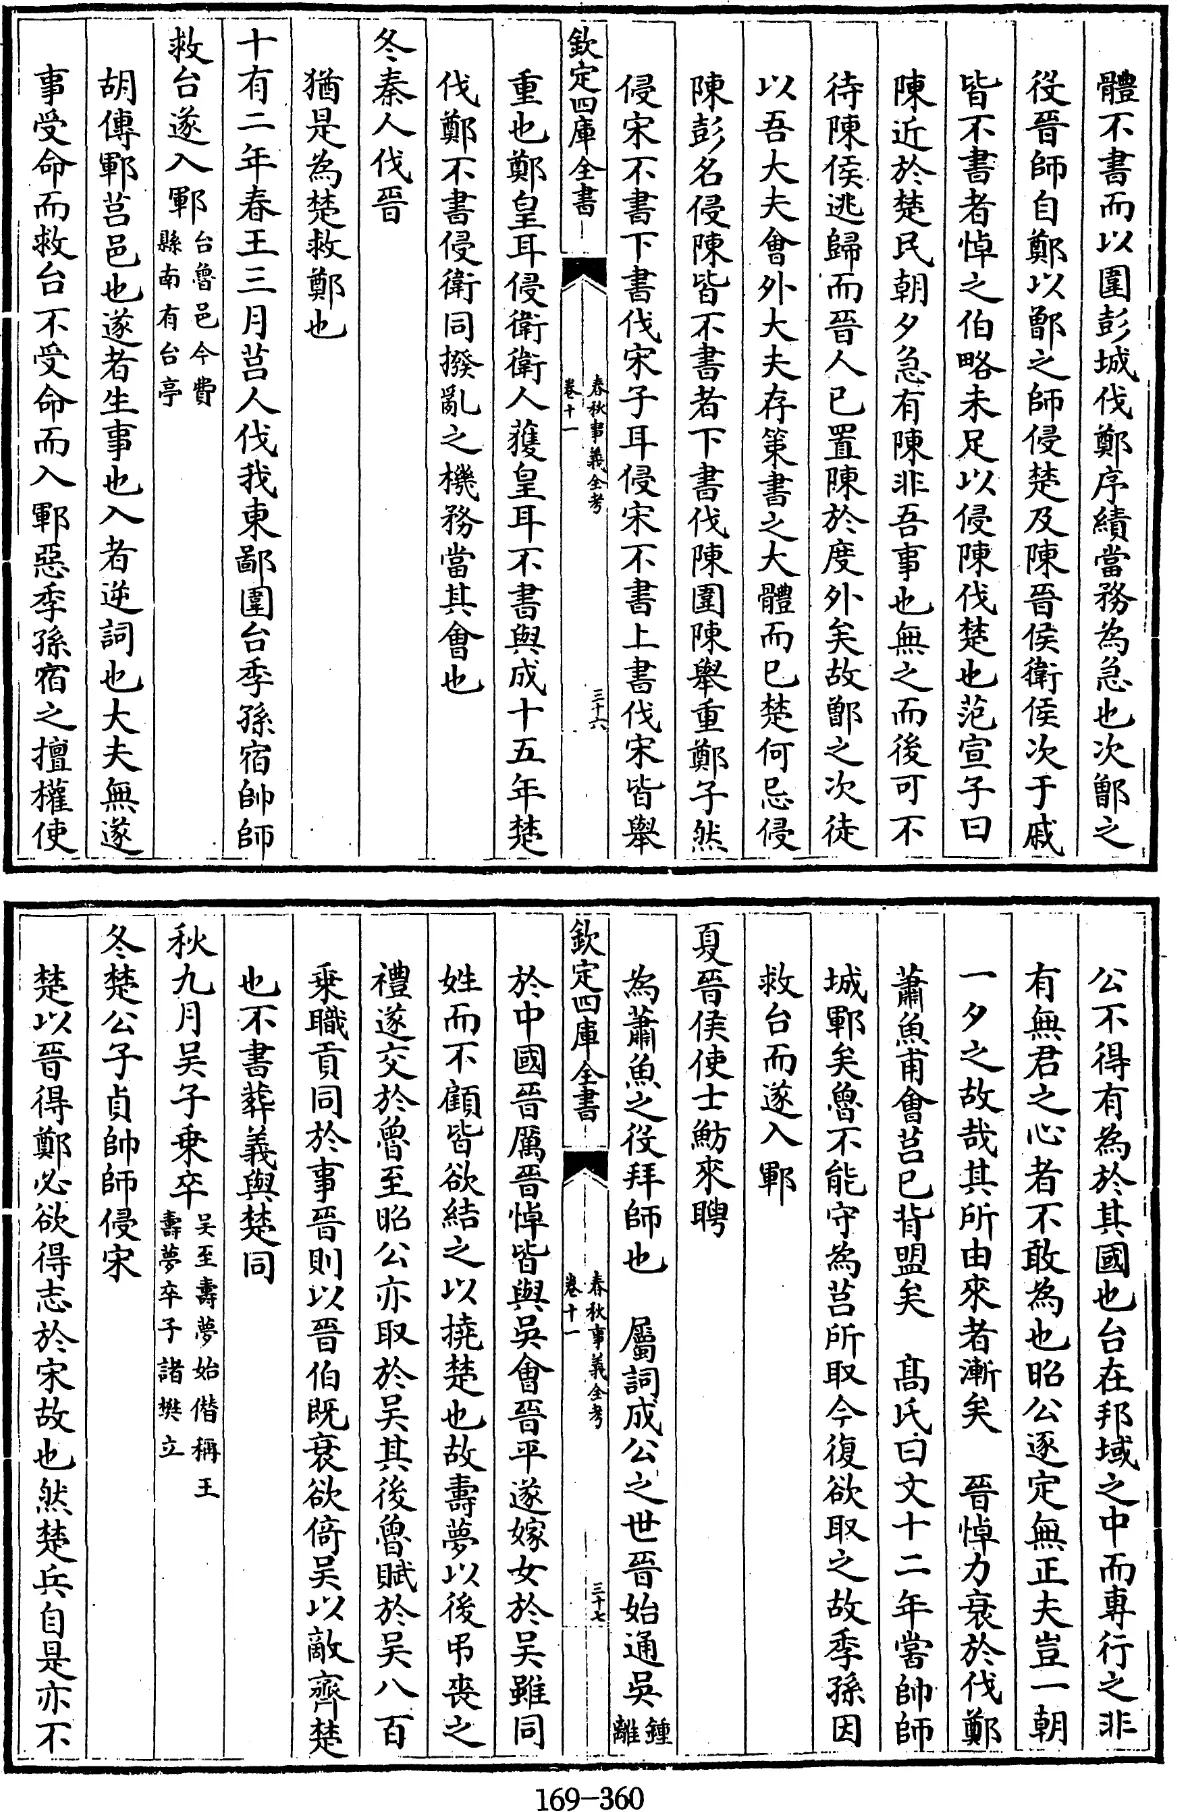 體不書而以圍彭城伐鄭序績當務為急也次鄫之
役晉師自鄭以鄫之師侵楚及陳晉侯衛侯次于戚
皆不書者悼之伯略未足以侵陳伐楚也范宣子曰
陳近於楚民朝夕急有陳非吾事也無之而後可不
待陳侯逃歸而晉人已置陳於度外矣故鄫之次徒
以吾大夫會外大夫存策書之大體而已楚何忌侵
陳彭名侵陳皆不書者下書伐陳圍陳舉重鄭子然
侵宋不書下書伐宋子耳侵宋不書上書伐宋皆舉
欽定四庫全書
春秋事義全考
卷十一
三十六
重也鄭皇耳侵衛衛人獲皇耳不書與成十五年楚
伐鄭不書侵衛同撥亂之機務當其會也
冬秦人伐晉
猶是為楚救鄭也
十有二年春王三月莒人伐我東鄙圍台季孫宿帥師
救台遂入鄆台魯邑今費
縣南有台亭
胡傳鄆莒邑也遂者生事也入者逆詞也大夫無遂
事受命而救台不受命而入鄆惡季孫宿之擅權使
公不得有為於其國也台在邦域之中而專行之非
有無君之心者不敢為也昭公逐定無正夫豈一朝
一夕之故哉其所由來者漸矣 晉悼力衰於伐鄭
蕭魚甫會莒已背盟矣 髙氏曰文十二年嘗帥師
城鄆矣魯不能守為莒所取今復欲取之故季孫因
救台而遂入鄆
夏晉侯使士魴來聘
為蕭魚之役拜師也 屬詞成公之世晉始通吳鍾
離
欽定四庫全書
春秋事義全考
卷十一
三十七
於中國晉厲晉悼皆與吳會晉平遂嫁女於吳雖同
姓而不顧皆欲結之以撓楚也故壽夢以後弔喪之
禮遂交於魯至昭公亦取於吳其後魯賦於吳八百
乗職貢同於事晉則以晉伯既衰欲倚吳以敵齊楚
也不書葬義與楚同
秋九月吳子乗卒吳至壽夢始僭稱王
壽夢卒子諸樊立
冬楚公子貞帥師侵宋
楚以晉得鄭必欲得志於宋故也然楚兵自是亦不
169-360